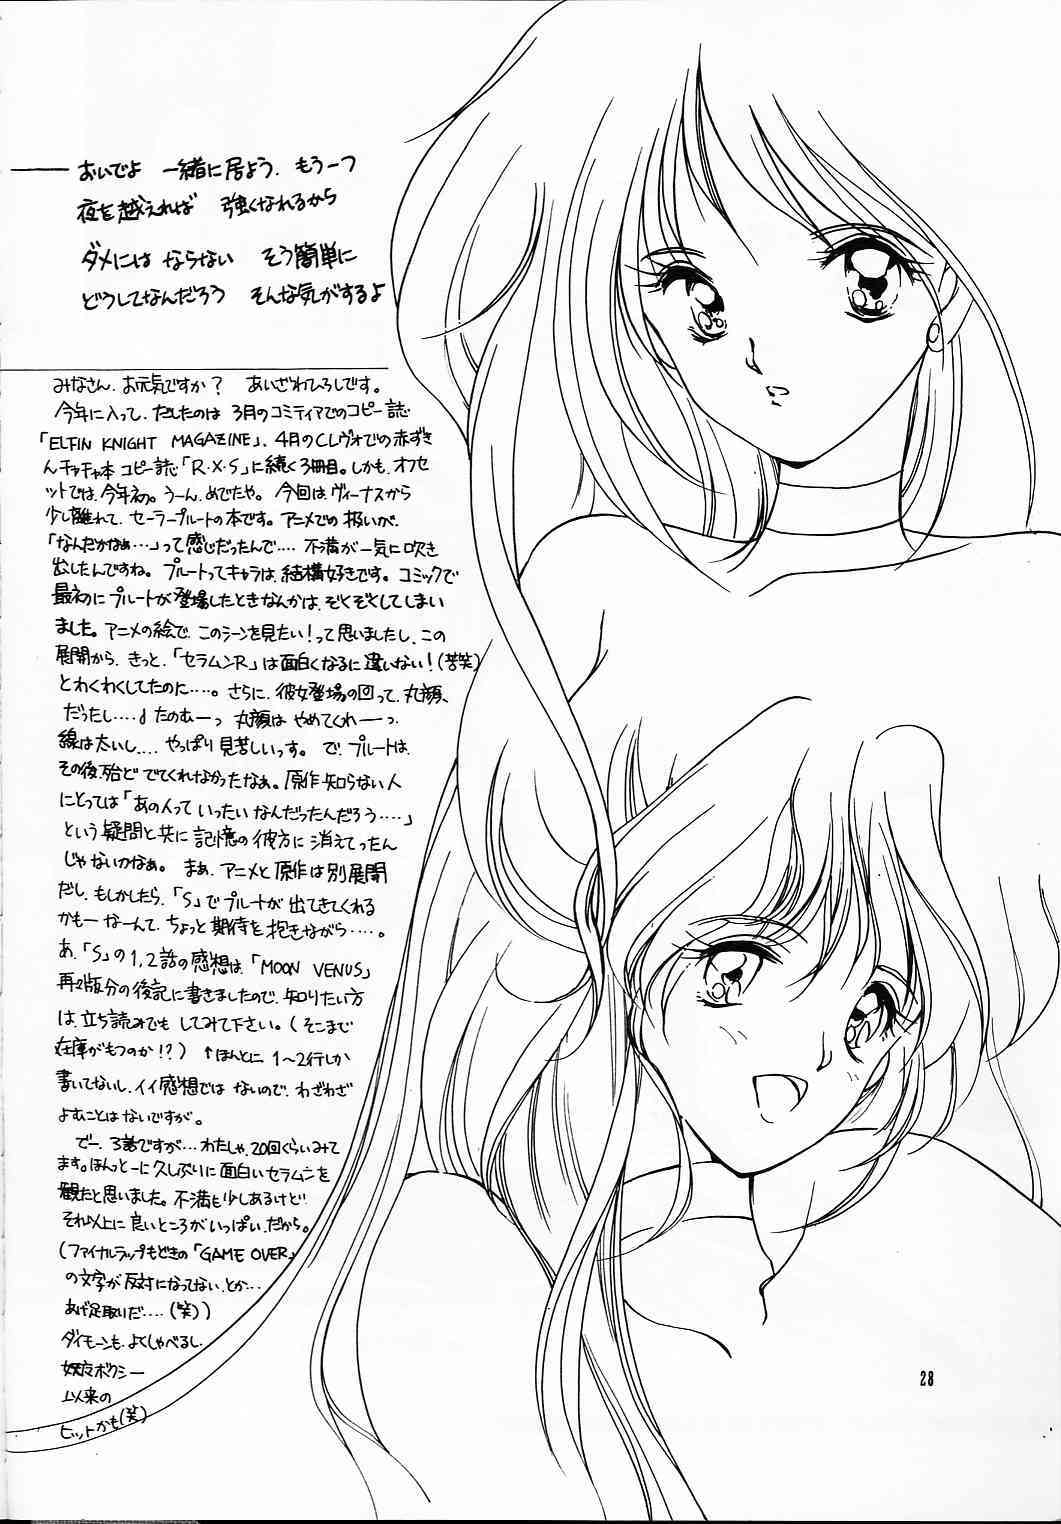 おいでよ 一緒に居よう. もう一つ
夜を越えれば 強くなれるから
ダメには ならない そう簡単に
どうしてなんだろう そんな気がするよ
みなさん. お元気ですか? あいざわひろしです。
今年に入って. だしたのは 3月のコミティアでのコピー誌
「ELFIN KNIGHT MAGAZINE」. 4月のCレヴォでの赤ずき
んチャチャ本 コピー誌「R・X・S」に続く3冊目。しかも. オフセ
ットでは. 今年初。うーん. めでたや。今回は. ヴィーナスから
少し離れて. セーラープルートの本です。アニメでの 扱いが.
「なんだかなぁ…」って感じだったんで…. 不満が一気に吹き
出したんですね。プルートってキャラは. 結構好きです。コミックで
最初に プルートが登場したときなんかは. ぞくぞくしてしまい
ました。アニメの絵で. このシーンを見たい!って思いましたし. この
展開から. きっと.「セラムンR」は面白くなるに違いない!(苦笑)
とわくわくしてたのに….。さらに. 彼女登場の回って. 丸顔、
だったし….♩ たのむーっ 丸顔は やめてくれーーっ.
線は太いし…. やっぱり見苦しいっす。で. プルートは.
その後殆ど でてくれなかったなぁ。原作知らない人
にとっては「あの人って いったい なんだったんだろう….」
という疑問と共に 記憶の彼方に 消えてったん
じゃないかなぁ。まぁ. アニメと 原作は 別展開
だし. もしかしたら.「S」でプルートが 出てきてくれる
かもー なーんて. ちょっと期待を抱きながら….。
あ.「S」の1,2話の感想は.「MOON VENUS」
再版分の後記に書きましたので. 知りたい方
は. 立ち読みでも してみて下さい。(そこまで
在庫がもつのか!?) ↑ほんとに 1〜2行しか
書いてないし. イイ感想では ないので. わざわざ
よむことはないですが。
でー. 3話ですが… わたしゃ. 20回くらいみて
ます。ほんっとーに 久しぶりに 面白いセラムンを
観たと思いました。不満も少しあるけど
それ以上に 良いところがいっぱいだから。
(ファイナルラップもどきの「GAME OVER」
の文字が 反対になってない. とか…
あげ足取りだ….(笑))
ダイモーンも. よくしゃべるし.
妖女ボクシー
以来の
ヒットかも(笑)
28